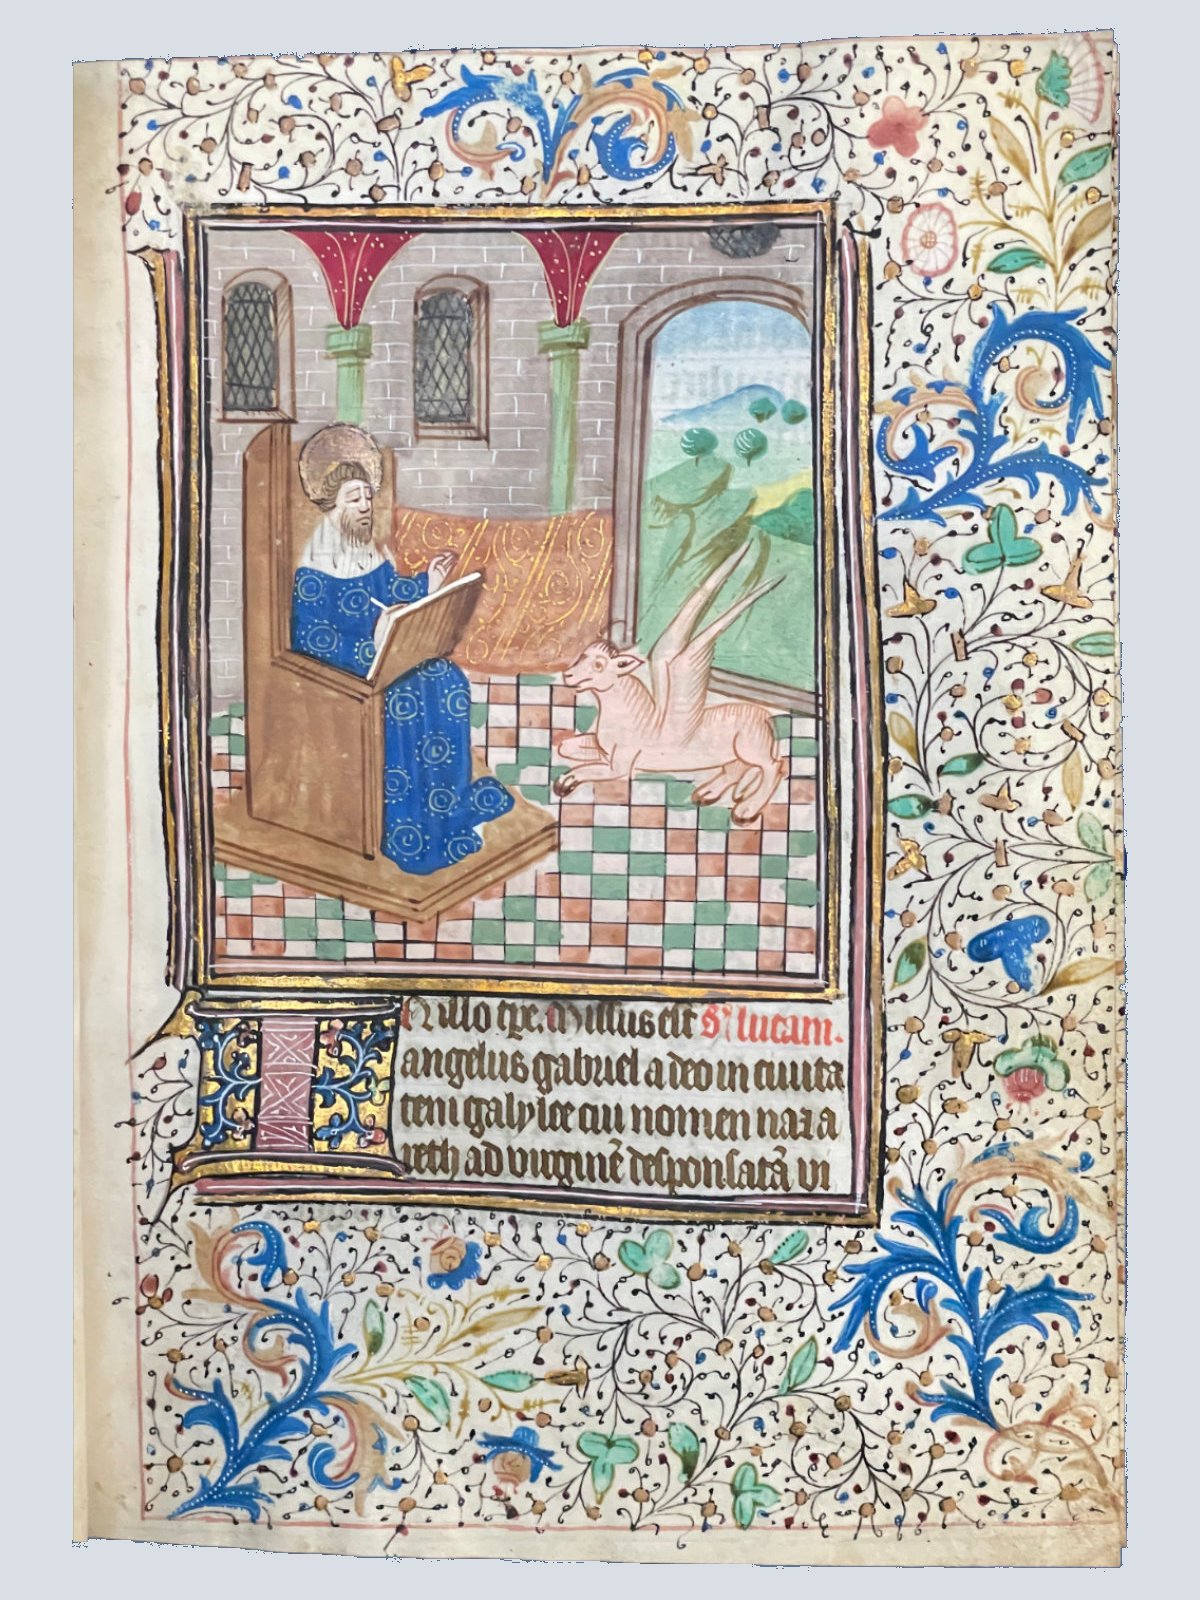 In illo tp̄e. Missus est S. lucam.
angelus gabriel a deo in ciuita
tem galylee cui nomen naza
reth ad uirginē desponsatā ui